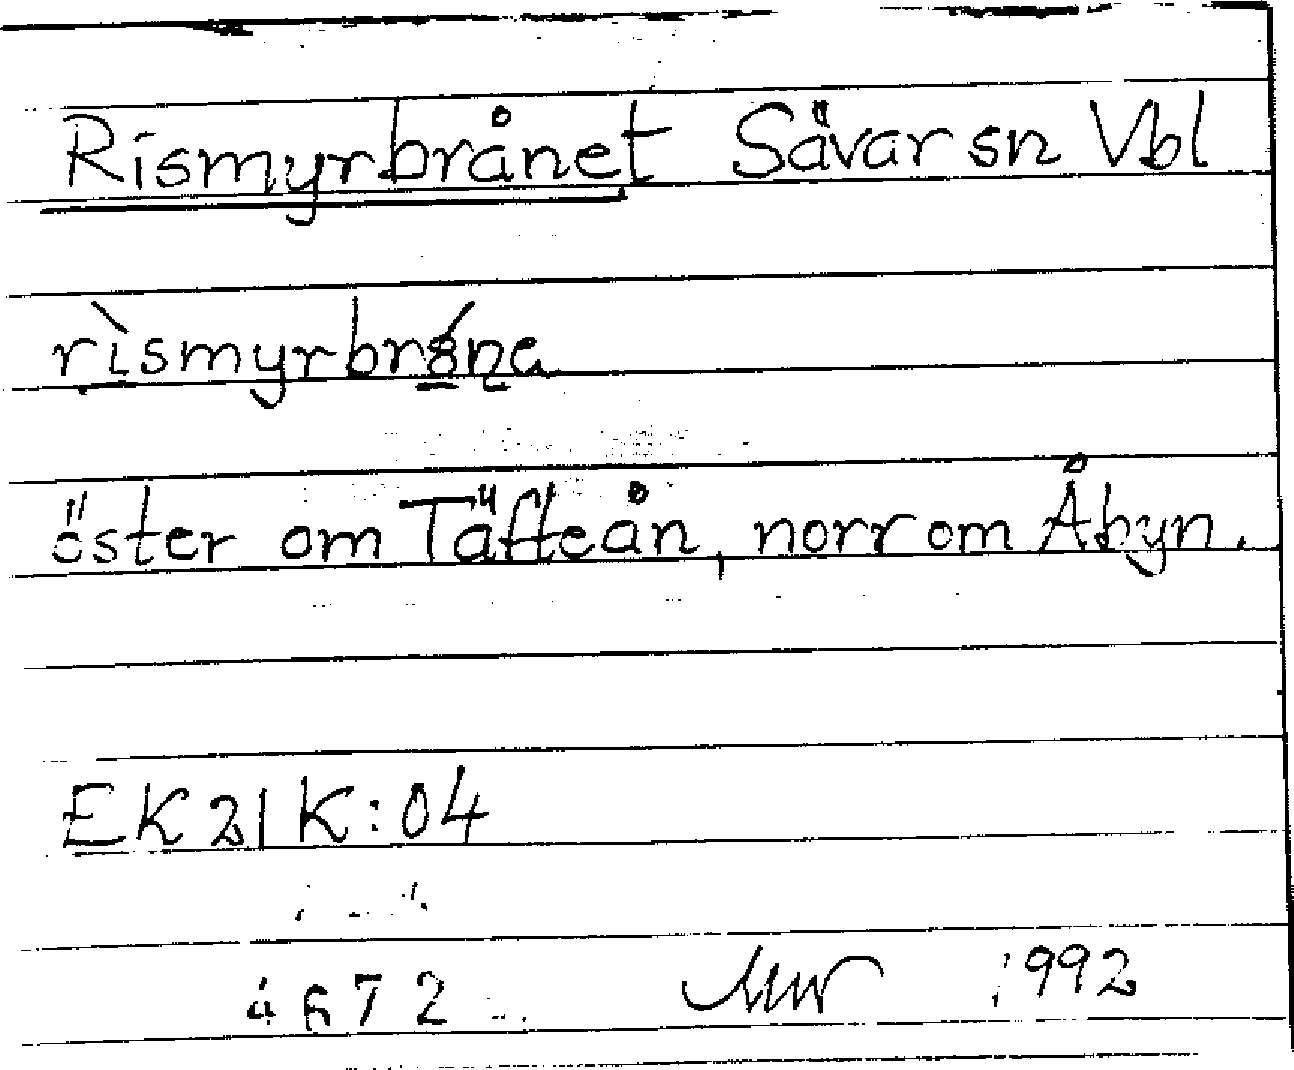 Rismyrbrånet Sävar sn Vbl
rìsmyrbr8́na
öster om Täfteån, norr om Åbyn.
EK 21 K:04
4672 MW 1992